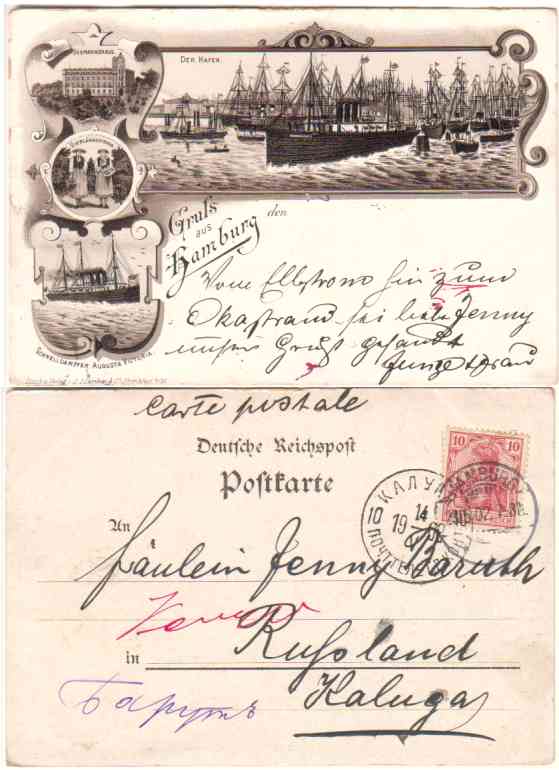 SEEMANNSHAUS
DER HAFEN
Gruss
aus
Hamburg
den
Vom Elbstrom hin zum
Okastrand sei liebe Jenny
unser Gruß gesandt
SCHNELLDAMPFER AUGUSTA VICTORIA
carte postale
Deutsche Reichspost
Postkarte
10 10
КАЛУГА
HAMBURG
10
19
14
02
An
Fräulein Jenny Baruth
in Russland
Kaluga
Барутъ